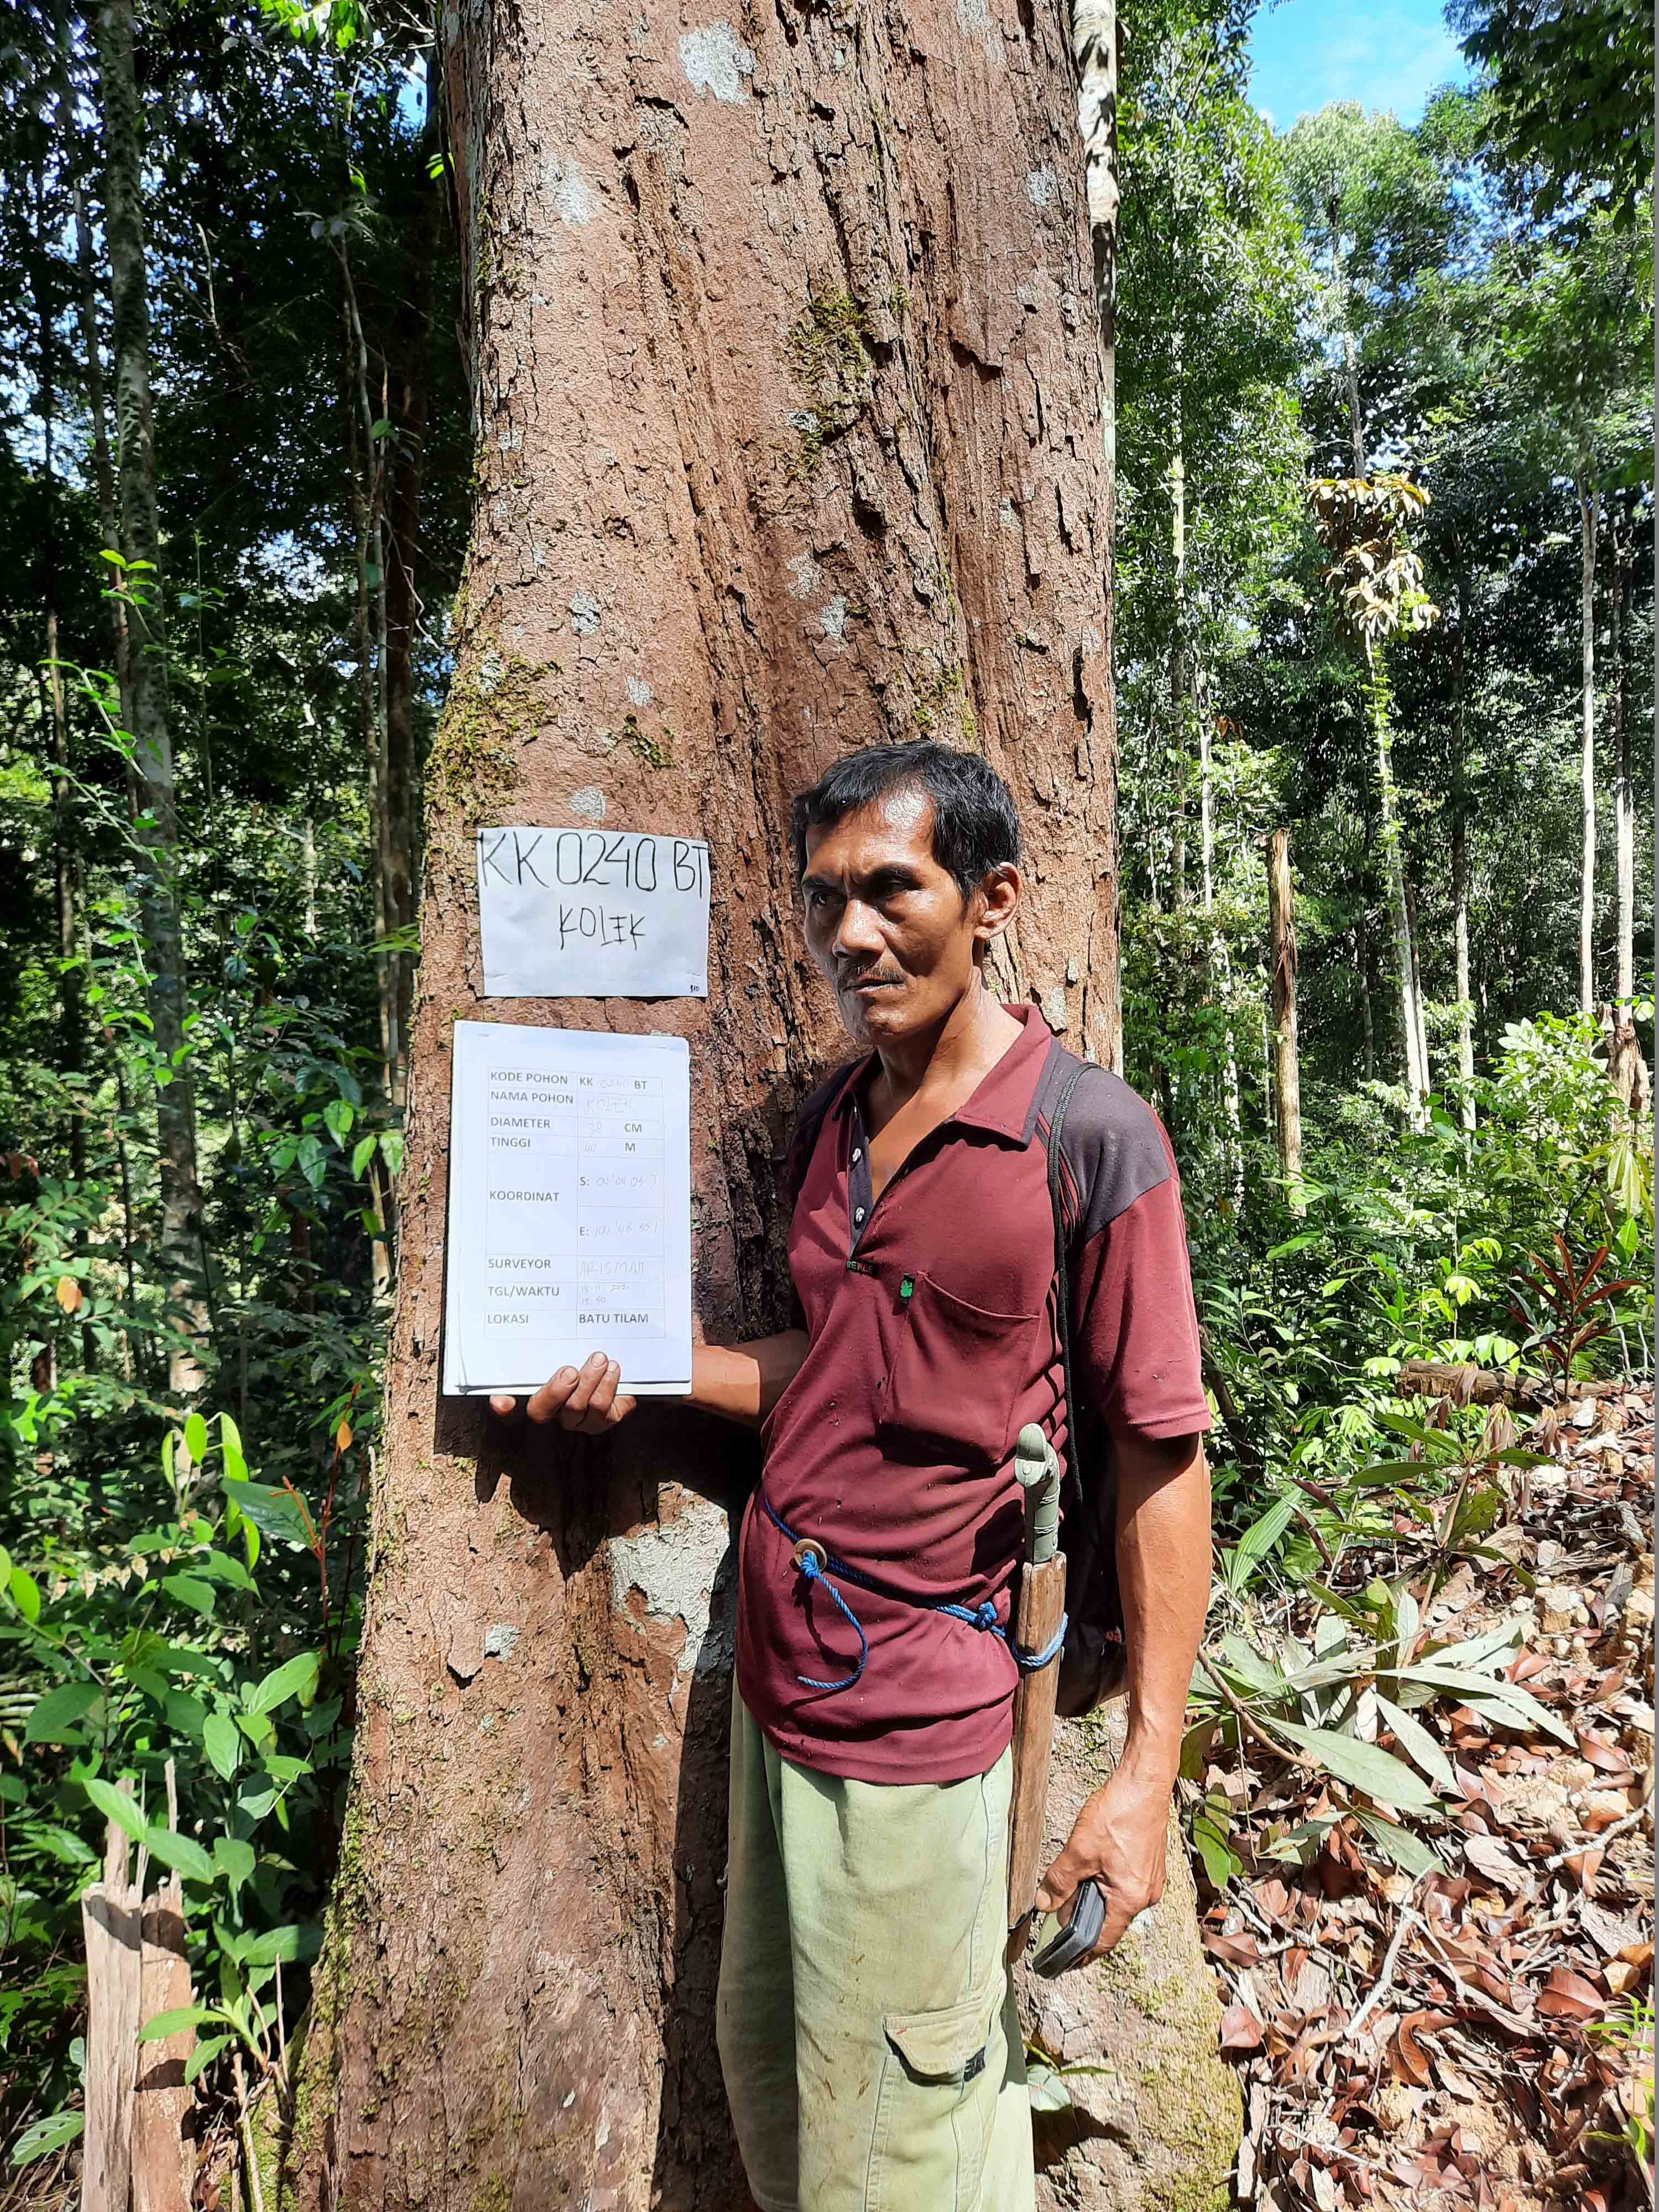 KK 0240 BT
KOLEK
KODE POHON KK 0240 BT
NAMA POHON KOLEK
DIAMETER CM
TINGGI 40 M
KOORDINAT
S:
E:
SURVEYOR ARISMAN
TGL/WAKTU
LOKASI BATU TILAM